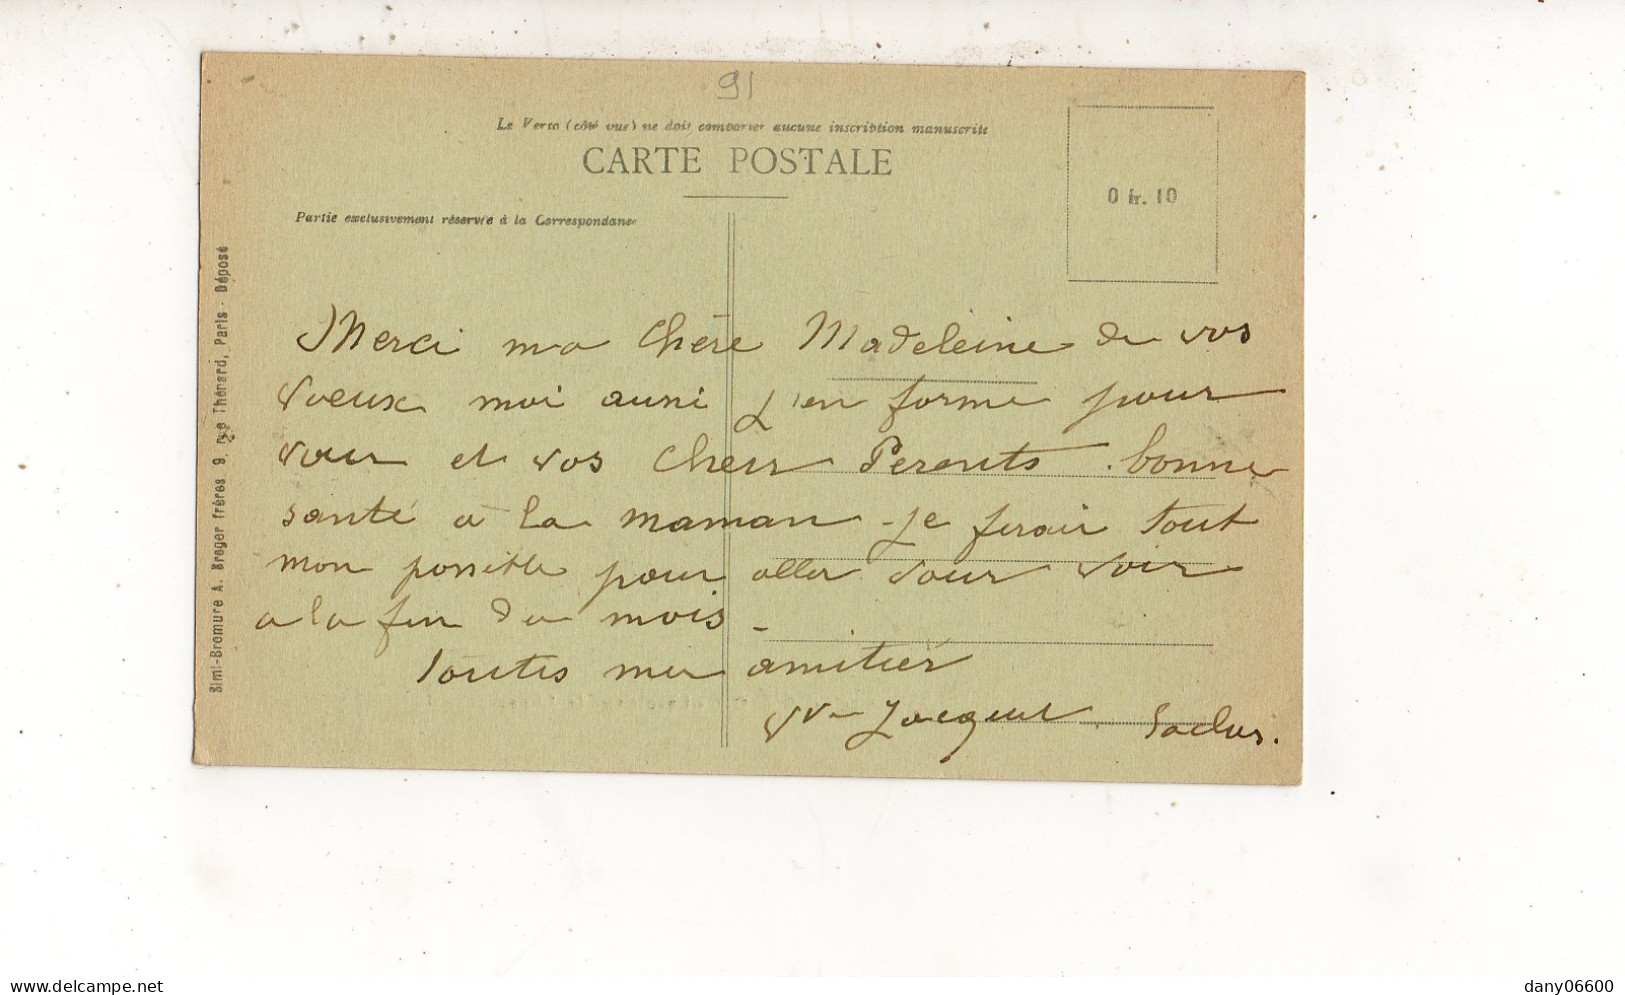 91
Le Verso (côté vue) ne doit comporter aucune inscription manuscrite
CARTE POSTALE
0 fr. 10
Partie exclusivement réservée à la Correspondance
Simi-Bromure A. Breger frères 9, rue Thénard, Paris - Déposé
Merci ma Chère Madeleine de vos
voeux moi aussi j'en forme pour
vous et vos Chers Parents. bonne
santé à la maman - je ferais tout
mon possible pour aller vous voir
a la fin du mois -
Toutes mes amitiés
Vve Jacques Saclas.
www.delcampe.net
dany06600